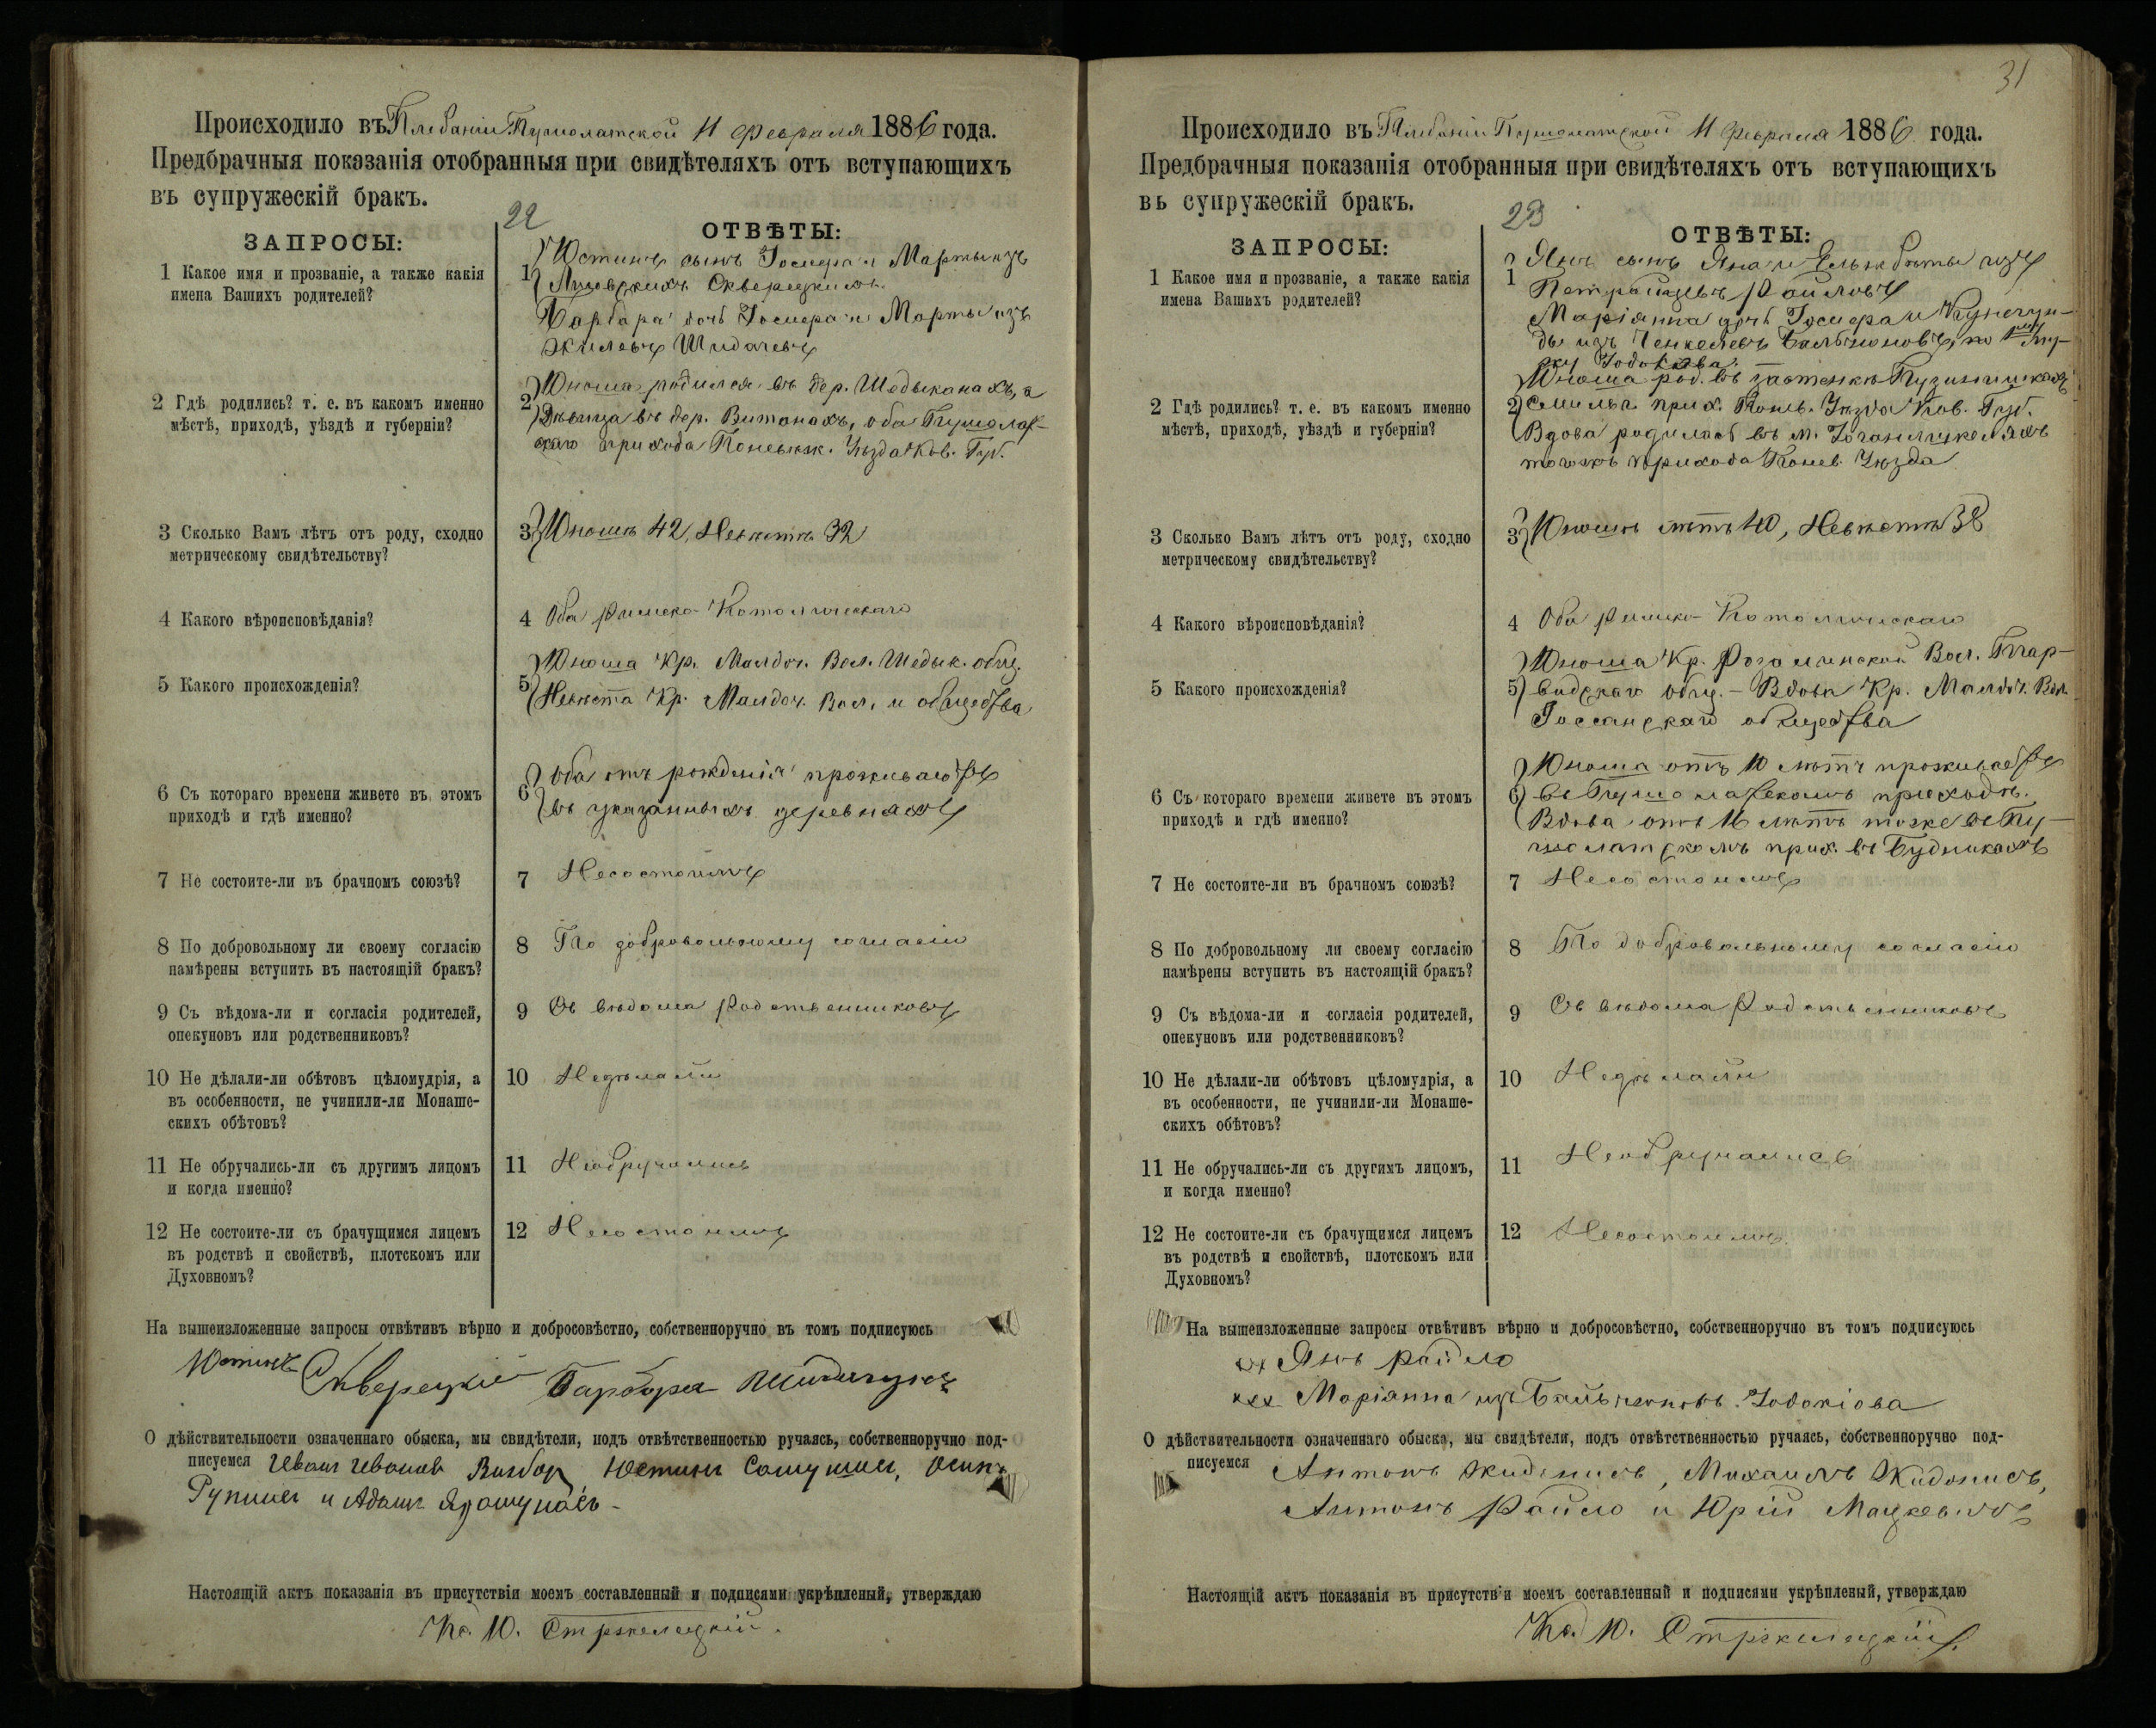 Происходило въ Плебаніи Пушолатской 11 февраля 1886 года.
Предбрачныя показанія отобранныя при свидѣтеляхъ отъ вступающихъ
въ супружескій бракъ.
22
ЗАПРОСЫ:
ОТВѢТЫ:
1 Какое имя и прозваніе, а также какія
имена Вашихъ родителей?
1 Юстинъ сынъ Іосифа и Марты изъ
Скверецкихъ
Барбара дочь Іосифа и Марты изъ
2 Гдѣ родились? т. е. въ какомъ именно
мѣстѣ, приходѣ, уѣздѣ и губерніи?
2 Юноша родился въ дер. Шедыканахъ, а
Дѣвица въ дер. Витанахъ, оба Пушолат-
скаго прихода Поневѣж. Уѣзда Ков. Губ.
3 Сколько Вамъ лѣтъ отъ роду, сходно
метрическому свидѣтельству?
3 Юношѣ 42, Невѣстѣ 32
4 Какого вѣроисповѣданія?
4 Оба Римско-Католическаго
5 Какого происхожденія?
5 Юноша Кр. Малдоч. Вол. Шедык. общ.
Невѣста Кр. Малдоч. Вол. и общества
6 Съ котораго времени живете въ этомъ
приходѣ и гдѣ именно?
6 Оба отъ рожденія проживаютъ
въ указанныхъ деревняхъ
7 Не состоите-ли въ брачномъ союзѣ?
7 Несостоимъ
8 По добровольному ли своему согласію
намѣрены вступить въ настоящій бракъ?
8 По добровольному согласію
9 Съ вѣдома-ли и согласія родителей,
опекуновъ или родственниковъ?
9 Съ вѣдома Родственниковъ
10 Не дѣлали-ли обѣтовъ цѣломудрія, а
въ особенности, не учинили-ли Монаше-
скихъ обѣтовъ?
10 Недѣлали
11 Не обручались-ли съ другимъ лицомъ
и когда именно?
11 Необручались
12 Не состоите-ли съ брачущимся лицемъ
въ родствѣ и свойствѣ, плотскомъ или
Духовномъ?
12 Несостоимъ
На вышеизложенные запросы отвѣтивъ вѣрно и добросовѣстно, собственноручно въ томъ подписуюсь
Юстинъ Скверецкій Барбара
О дѣйствительности означеннаго обыска, мы свидѣтели, подъ отвѣтственностью ручаясь, собственноручно под-
писуемся Иванъ Ивановъ Юстинъ Осипъ
и Адамъ
Настоящій актъ показанія въ присутствіи моемъ составленный и подписями укрѣпленый, утверждаю
Кс. Ю. Стржелецкій.
31
Происходило въ Плебаніи Пушолатской 11 февраля 1886 года.
Предбрачныя показанія отобранныя при свидѣтеляхъ отъ вступающихъ
вь супружескій бракъ.
23
ЗАПРОСЫ:
ОТВѢТЫ:
1 Какое имя и прозваніе, а также какія
имена Вашихъ родителей?
1 Янъ сынъ Яна и Ельжбѣты изъ
Райловъ
Маріянна дочь Іосифа и Кунегун-
ды изъ по 1му му-
жу
2 Гдѣ родились? т. е. въ какомъ именно
мѣстѣ, приходѣ, уѣздѣ и губерніи?
Юноша род. въ застенкѣ
2 прих. Понев. Уѣзда Ков. Губ.
Вдова родилась въ
тогожъ прихода Понев. Уѣзда
3 Сколько Вамъ лѣтъ отъ роду, сходно
метрическому свидѣтельству?
3 Юношѣ лѣтъ 40, Невѣстѣ 38
4 Какого вѣроисповѣданія?
4 Оба Римско-Католическаго
5 Какого происхожденія?
Юноша Кр. Вол.
5 общ. - Вдова Кр. Малдоч. Вол.
общества
6 Съ котораго времени живете въ этомъ
приходѣ и гдѣ именно?
Юноша отъ 10 лѣтъ проживаетъ
6 въ Пушолатскомъ приходѣ.
Вдова отъ 16 лѣтъ тоже въ Пу-
шолатскомъ прих. въ Будникахъ
7 Не состоите-ли въ брачномъ союзѣ?
7 Несостоимъ
8 По добровольному ли своему согласію
намѣрены вступить въ настоящій бракъ?
8 По добровольному согласію
9 Съ вѣдома-ли и согласія родителей,
опекуновъ или родственниковъ?
9 Съ вѣдома Родственниковъ
10 Не дѣлали-ли обѣтовъ цѣломудрія, а
въ особенности, не учинили-ли Монаше-
скихъ обѣтовъ?
10 Недѣлали
11 Не обручались-ли съ другихъ лицомъ,
и когда именно?
11 Необручались
12 Не состоите-ли съ брачущимся лицемъ
въ родствѣ и свойствѣ, плотскомъ или
Духовномъ?
12 Несостоимъ
На вышеизложенные запросы отвѣтивъ вѣрно и добросовѣстно, собственноручно въ томъ подписуюсь
xx Янъ Райло
xxx Маріянна изъ
О дѣйствительности означеннаго обыска, мы свидѣтели, подъ отвѣтственностью ручаясь, собственноручно под-
писуемся Антонъ Михаилъ
Антонъ Райло и Юрій Мацкевичъ
Настоящій актъ показанія въ присутствіи моемъ составленный и подписями укрѣпленый, утверждаю
Кс. Ю. Стржелецкій.